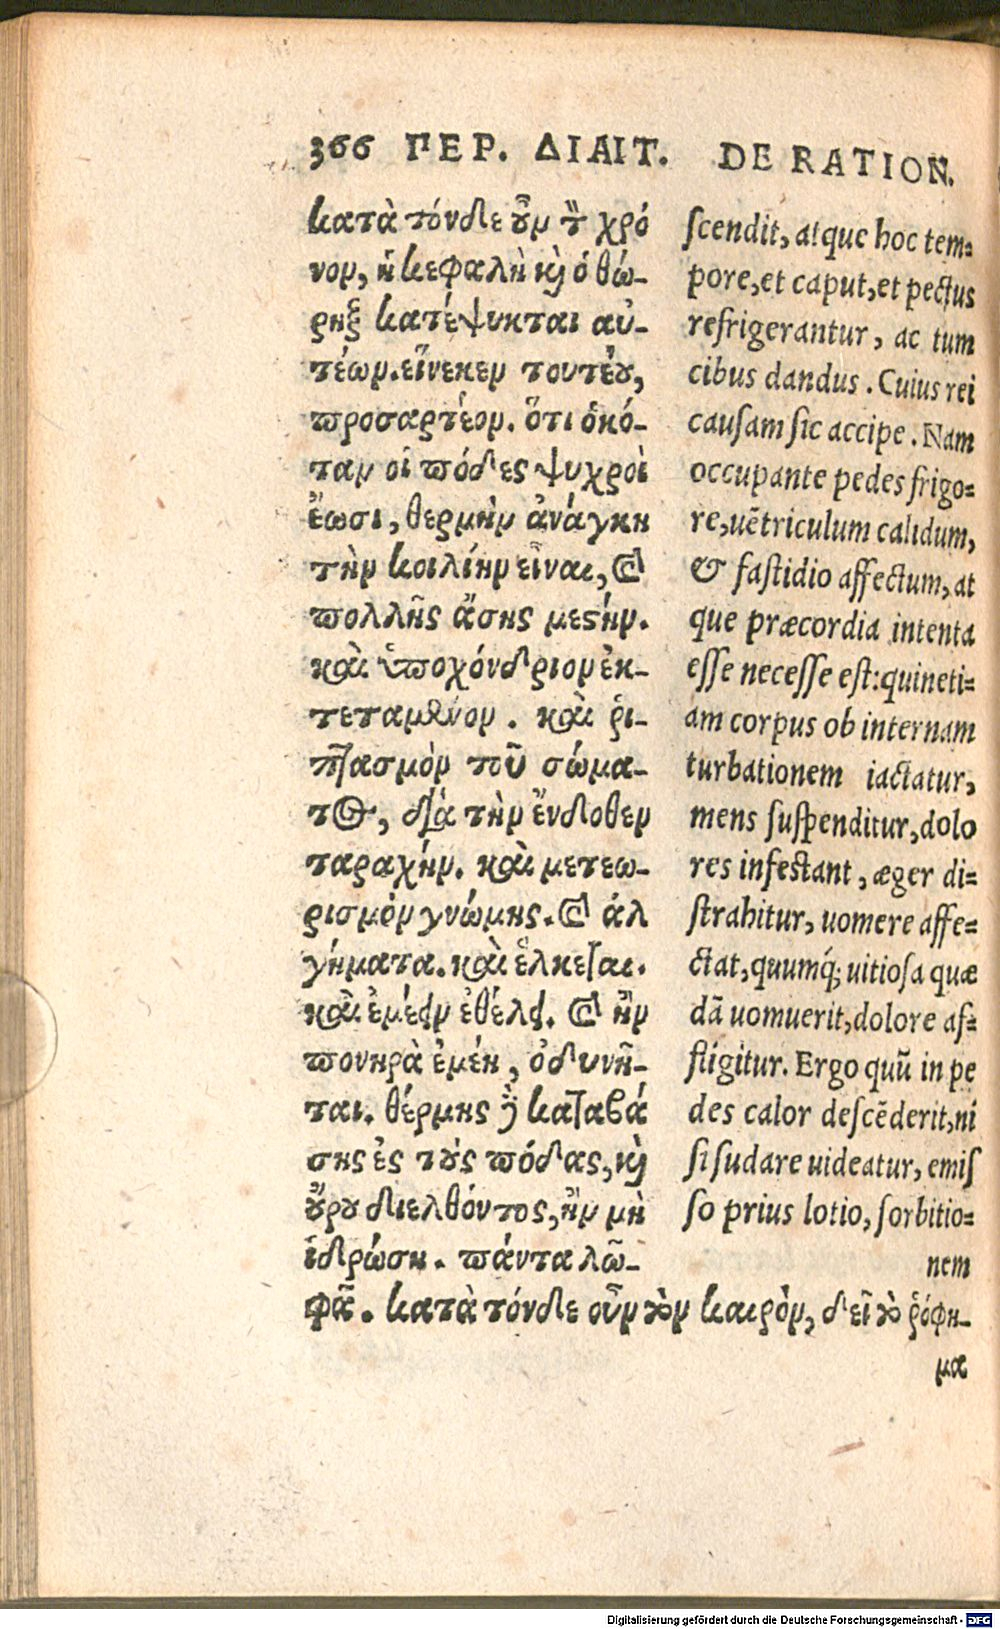 366 ΠΕΡ. ΔΙΑΙΤ. DE RATION.
κατὰ τόνδε οὖν τὸν χρό
νον, ἡ κεφαλὴ καὶ ὁ θώ-
ρηξ κατέψυκται αὐ-
τέων. εἵνεκεν τουτέου,
προσαρτέον. ὅτι ὁκό-
ταν οἱ πόδες ψυχροὶ
ἔωσι, θερμὴν ἀνάγκη
τὴν κοιλίην εἶναι, καὶ
πολλῆς ἄσης μεστήν.
καὶ ὑποχόνδριον ἐκ-
τεταμένον. καὶ ῥι-
πτασμὸν τοῦ σώμα-
τος, διὰ τὴν ἔνδοθεν
ταραχήν. καὶ μετεω-
ρισμὸν γνώμης. καὶ ἀλ
γήματα. καὶ ἕλκεται.
καὶ ἐμέειν ἐθέλει. καὶ ἢν
πονηρὰ ἐμέῃ, ὀδυνῆ-
ται. θέρμης δὲ καταβά
σης ἐς τοὺς πόδας, καὶ
οὔρου διελθόντος, ἢν μὴ
ἱδρώσῃ. πάντα λω-
φᾷ. κατὰ τόνδε οὖν τὸν καιρὸν, δεῖ τὸ ῥόφη-
μα
scendit, atque hoc tem-
pore, et caput, et pectus
refrigerantur, ac tum
cibus dandus. Cuius rei
causam sic accipe. Nam
occupante pedes frigo-
re, uētriculum calidum,
& fastidio affectum, at
que præcordia intenta
esse necesse est: quineti-
am corpus ob internam
turbationem iactatur,
mens suspenditur, dolo
res infestant, æger di-
strahitur, uomere affe-
ctat, quumq́; uitiosa quæ
dā uomuerit, dolore af-
fligitur. Ergo quū in pe
des calor descēderit, ni
si sudare uideatur, emis
so prius lotio, sorbitio-
nem
Digitalisierung gefördert durch die Deutsche Forschungsgemeinschaft - DFG